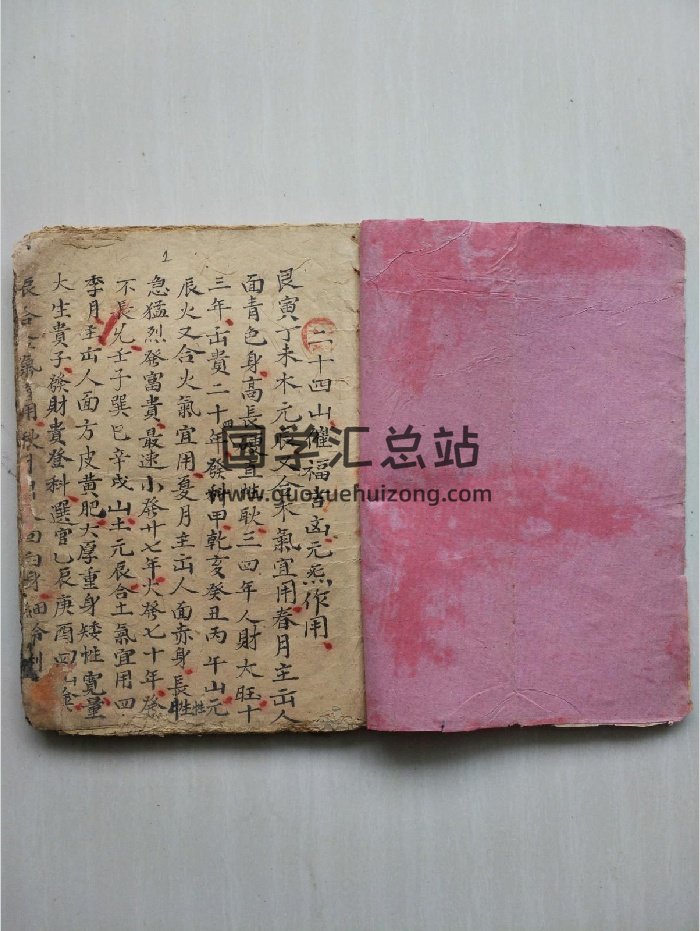 二十四山催福吉凶元炁作用
艮寅丁未木元辰又合木氣宜用春月主出人
面青色身高長 直性耿三四年人財大旺十
三年出貴二十年發科甲乾亥癸丑丙午山元
辰火又合火氣宜用夏月主出人面赤身長性
急猛烈發富貴最速小發廿七年大發七十年發
不長久壬子巽巳辛戌山土元辰合土氣宜用四
季月主出人面方皮黃肥大厚重身矮性寬量
大生貴子發財貴登科選官乙辰庚酉四山金
辰合金氣宜用秋月出人面白身細
1
国学汇总站
www.guoxuehuizong.com